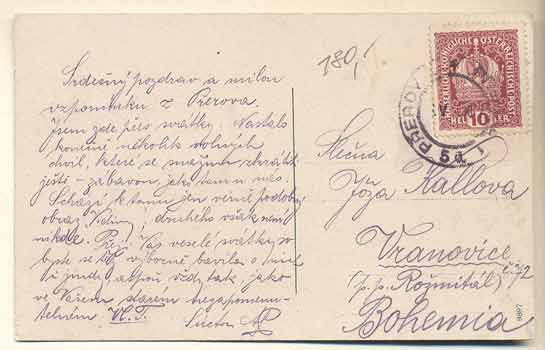 Srdečný pozdrav a milou
vzpomínku z Přerova.
Jsem zde přes svátky. Nastalo
konečně několik volných
chvil, které se
ještě – zábavou jako tam u nás.
Schází k tomu jen věrně podobný
obraz druhého však není
nikde. Přeji Vás veselé svátky,
byste se výborně bavila
i jindy, aspoň vždy tak, jako
ve Vašem starém nezapomenu-
telném V. T.
180,-
KAISERLICHE KÖNIGLICHE ÖSTERREICHISCHE POST
10
HELLER
PREROV
5a
Slečna
Jóža Kallova
Vranovice
č. 72
(p. p. Rožmitál)
Bohemia